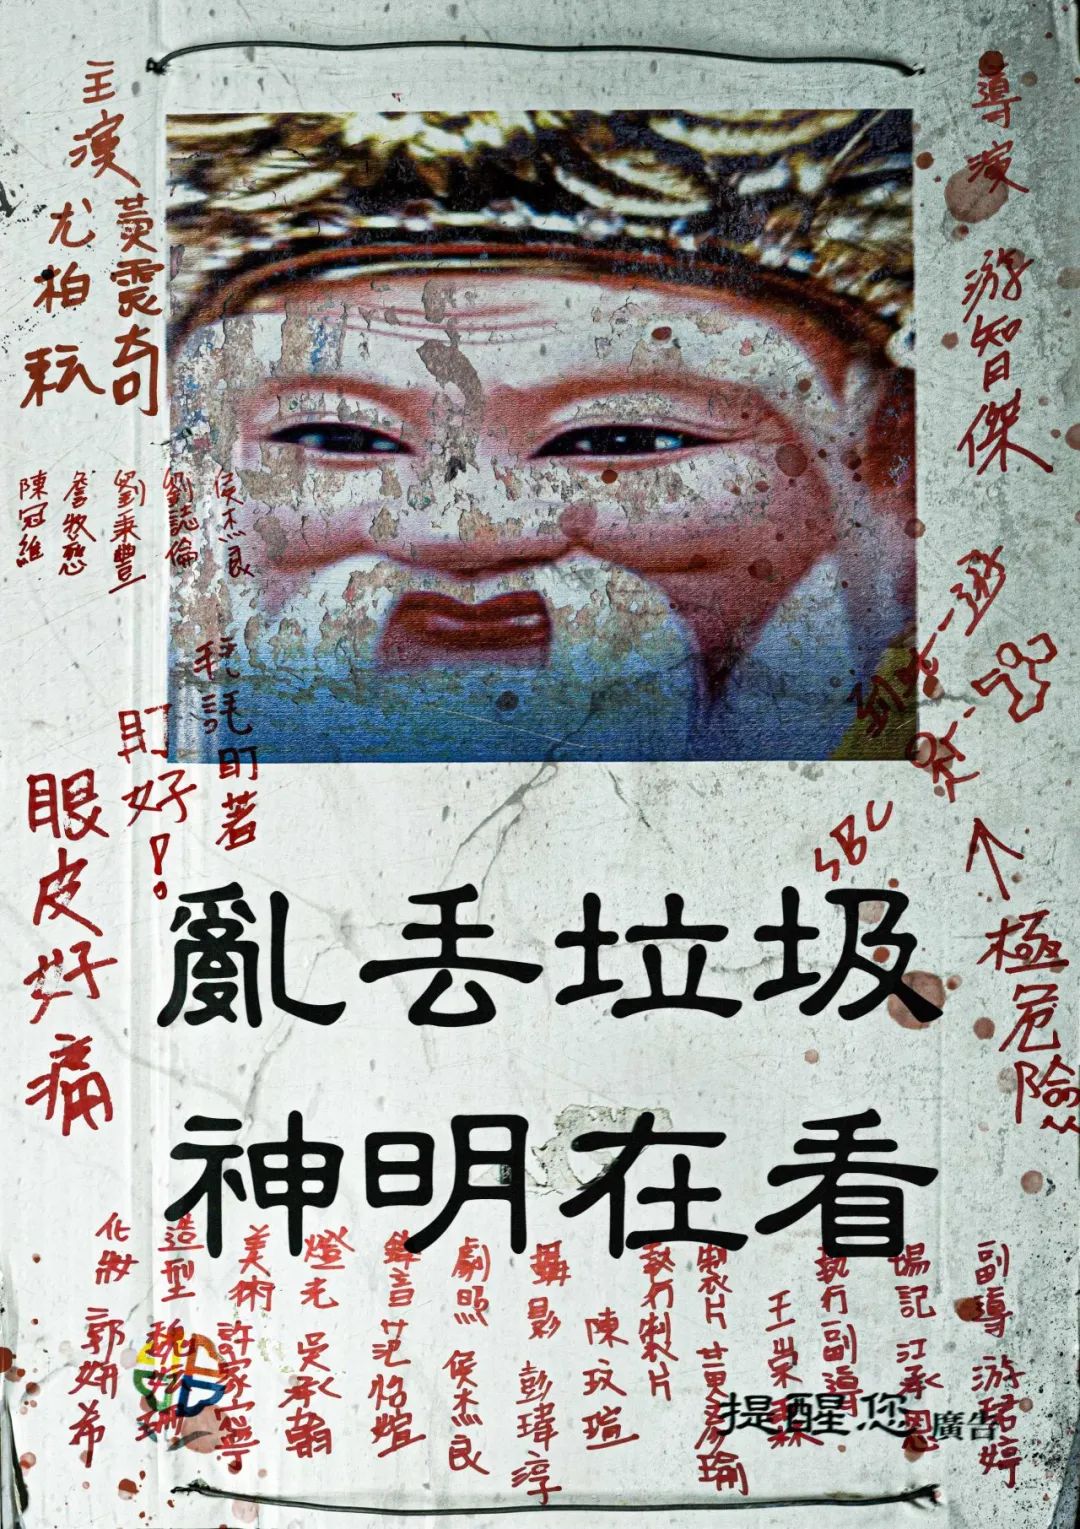 導演 游智傑
主演
黃震奇
尤柏耘
侯杰良
劉誌倫
劉秉豐
詹牧慈
陳冠維
眊眊盯著
盯好！。
眼皮好痛
SBC
↑極危險
亂丟垃圾
神明在看
副導 游珺婷
場記 江承恩
執行副導
王崇霖
製片 黃彥瑜
執行製片
陳玟瑄
攝影 彭瑋淳
劇照 侯杰良
錄音 范怡煊
燈光 吳承翰
美術 許家寧
造型 魏妘珊
化妝 郭妍希
提醒您 廣告